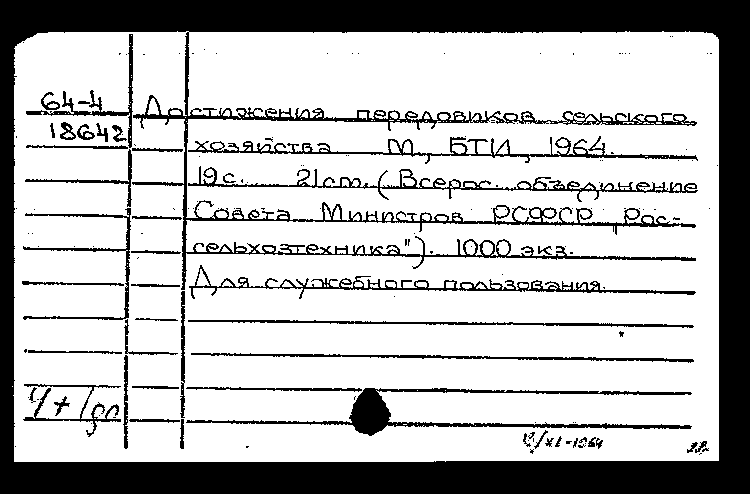 64-4
18642
Достижения передовиков сельского
хозяйства М., БТИ, 1964.
19 с. 21 cm. (Всерос. объединение
Совета Министров РСФСР „Рос-
сельхозтехника"). 1000 экз.
Для служебного пользования.
/XI-1964